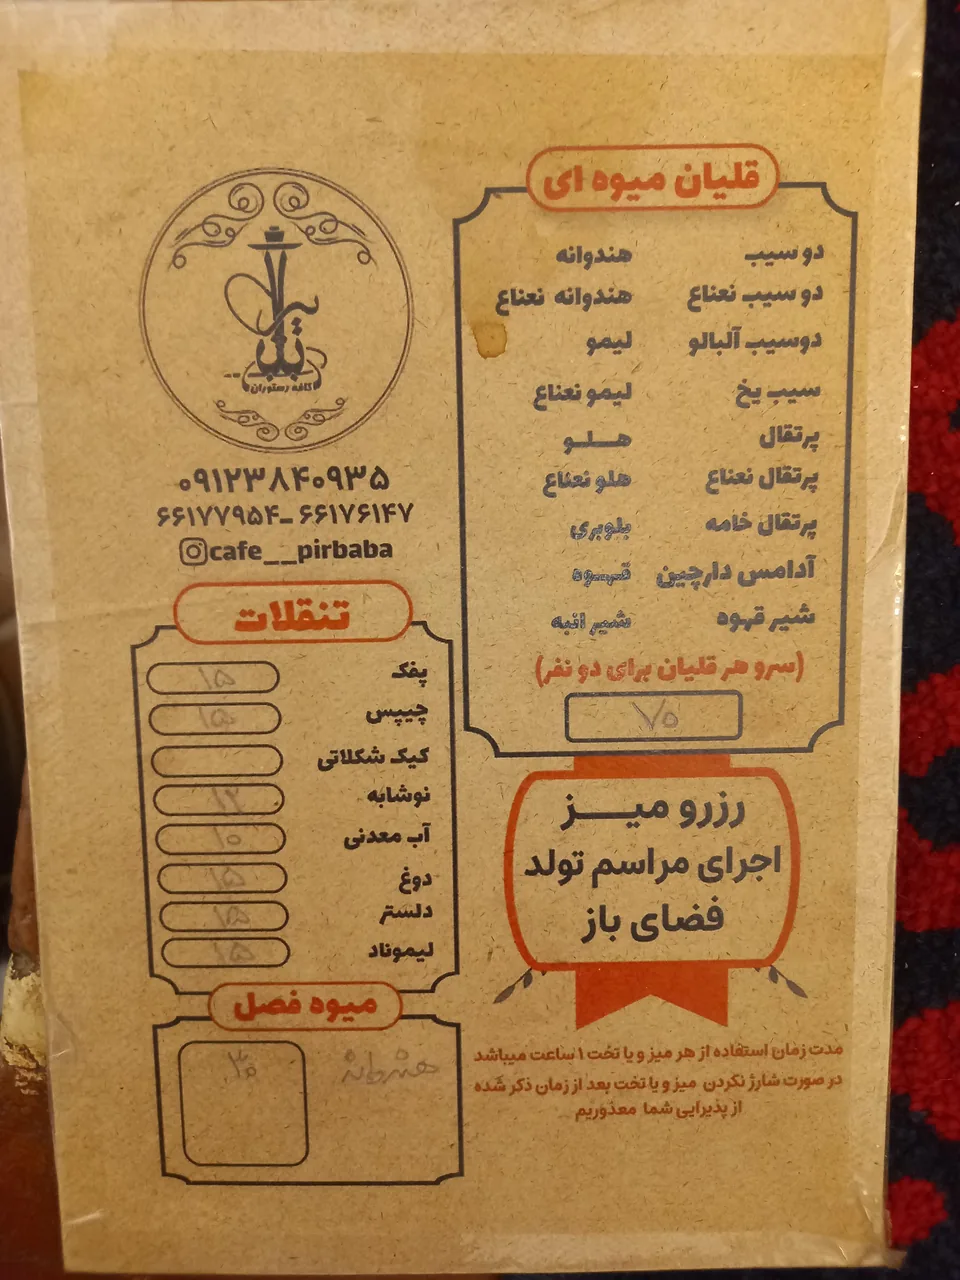 قلیان میوه ای
دو سیب هندوانه
دو سیب نعناع هندوانه نعناع
دوسیب آلبالو لیمو
سیب یخ لیمو نعناع
پرتقال هلو
پرتقال نعناع هلو نعناع
پرتقال خامه بلوبری
آدامس دارچین قهوه
شیر قهوه شیر انبه
(سرو هر قلیان برای دو نفر)
۷۰
رزرو میز
اجرای مراسم تولد
فضای باز
مدت زمان استفاده از هر میز و یا تخت ۱ ساعت میباشد
در صورت شارژ نکردن میز و یا تخت بعد از زمان ذکر شده
از پذیرایی شما معذوریم
پیر
بابا
کافه رستوران
۰۹۱۲۳۸۴۰۹۳۵
۶۶۱۷۶۱۴۷ - ۶۶۱۷۷۹۵۴
cafe__pirbaba
تنقلات
پفک ۱۵
چیپس ۱۵
کیک شکلاتی
نوشابه ۱۲
آب معدنی ۱۰
دوغ ۱۵
دلستر ۱۵
لیموناد ۱۵
میوه فصل
هندوانه ۳۰